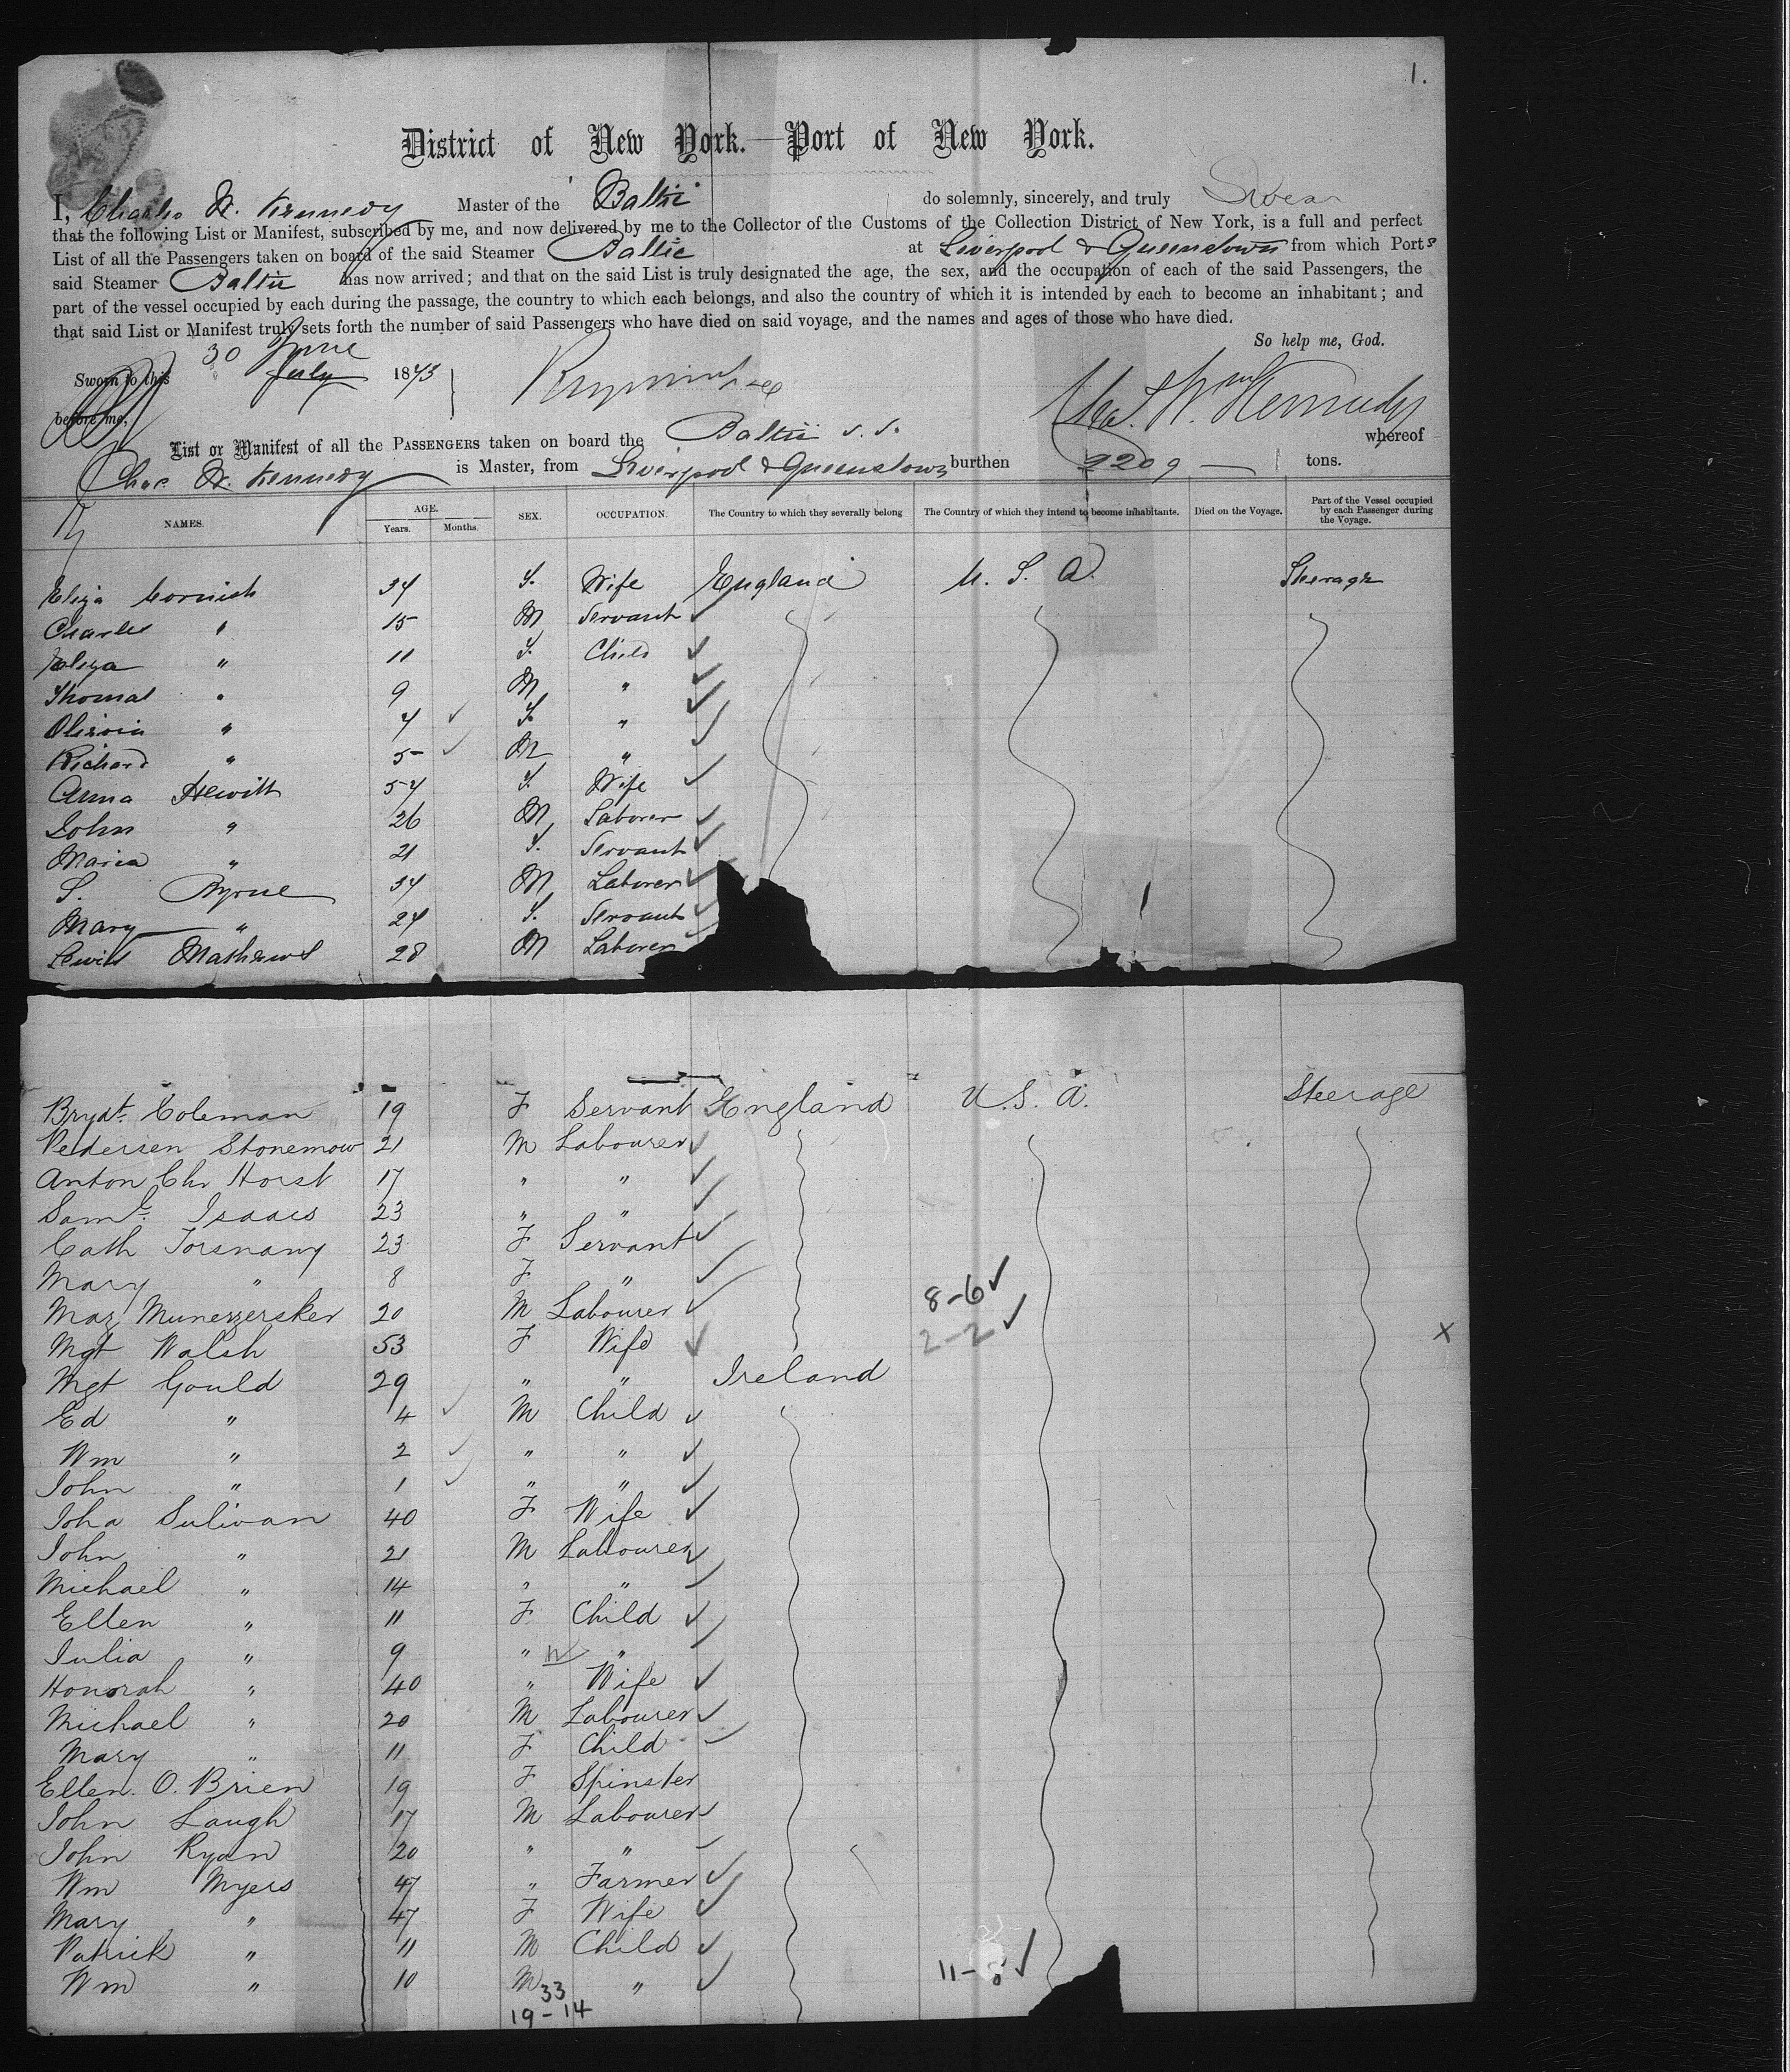 1.
District of New York.—Port of New York.
I, Charles W. Kennedy Master of the Baltic do solemnly, sincerely, and truly Swear
that the following List or Manifest, subscribed by me, and now delivered by me to the Collector of the Customs of the Collection District of New York, is a full and perfect
List of all the Passengers taken on board of the said Steamer Baltic at Liverpool & Queenstown from which Ports
said Steamer Baltic has now arrived; and that on the said List is truly designated the age, the sex, and the occupation of each of the said Passengers, the
part of the vessel occupied by each during the passage, the country to which each belongs, and also the country of which it is intended by each to become an inhabitant; and
that said List or Manifest truly sets forth the number of said Passengers who have died on said voyage, and the names and ages of those who have died.
So help me, God.
Sworn to this 30 June July 1873
before me,
List or Manifest of all the PASSENGERS taken on board the Baltic S. S. whereof
Chas. W. Kennedy is Master, from Liverpool & Queenstown burthen 2209 tons.
NAMES. AGE. Years. Months. SEX. OCCUPATION. The Country to which they severally belong The Country of which they intend to become inhabitants. Died on the Voyage. Part of the Vessel occupied by each Passenger during the Voyage.
Eliza Cornish 34 F. Wife England U. S. A. Steerage
Charles " 15 M Servant
Eliza " 11 F. Child
Thomas " 9 M "
" 4 F. "
Richard " 5 M "
Anna Hewitt 54 F. Wife
John " 26 M Laborer
Maria " 21 F. Servant
S. Byrne 34 M Laborer
Mary " 24 F. Servant
Lewis Mathews 28 M Laborer
Brydt. Coleman 19 F Servant England U. S. A. Steerage
Pedersen Stonemow 21 M Labourer
Anton Chr Horst 17 " "
Saml. Isaacs 23 " "
Cath Torsnany 23 F Servant
Mary " 8 F "
8-6
Maz Munezzersker 20 M Labourer
2-2
Mgt Walsh 53 F Wife X
Mgt Gould 29 " " Ireland
Ed " 4 M Child
Wm " 2 " "
John " 1 " "
Joha Sulivan 40 F Wife
John " 21 M Labourer
Michael " 14 " "
Ellen " 11 F Child
Julia " 9 " "
Honorah " 40 " Wife
Michael " 20 M Labourer
Mary " 11 F Child
Ellen O. Brien 19 F Spinster
John Laugh 17 M Labourer
John Ryan 20 " "
Wm Myers 47 " Farmer
Mary " 47 F Wife
Patrick " 11 M Child
Wm " 10 M "
33
19-14